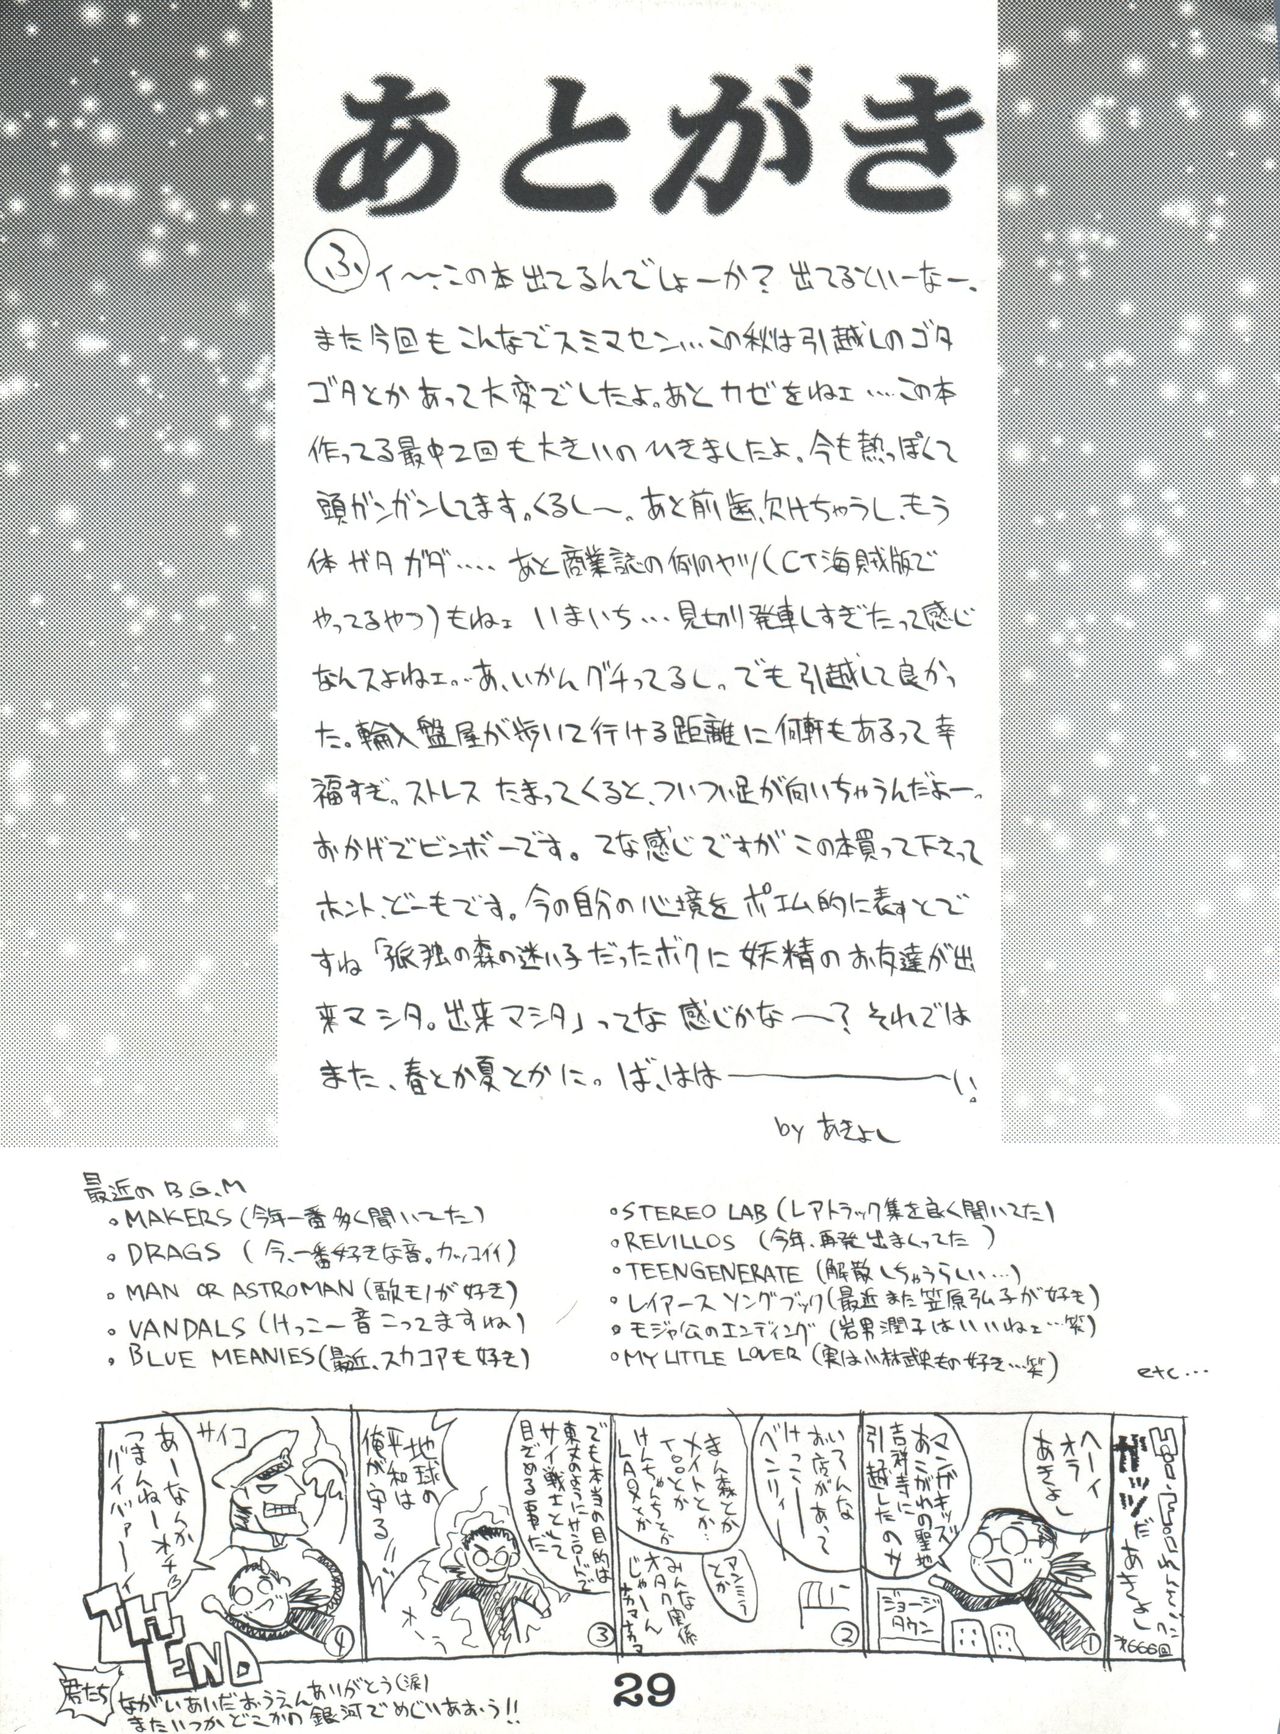 あとがき
ふィ〜、この本出てるんでしょーか？出てるといーなー、
また今回もこんなでスミマセン…この秋は引越しのゴタ
ゴタとかあって大変でしたよ。あとカゼをねェ……この本
作ってる最中2回も大きいのひきましたよ。今も熱っぽくて
頭ガンガンしてます。くるし〜。あと前歯、欠けちゃうし、もう
体ガタガタ‥‥あと商業誌の例のヤツ(CT海賊版で
やってるやつ)もねェ いまいち…見切り発車しすぎたって感じ
なんスよねェ。‥あ、いかんグチってるし。でも引越して良かっ
た。輸入盤屋が歩いて行ける距離に何軒もあるって幸
福すぎ。ストレスたまってくると、ついつい足が向いちゃうんだよー。
おかげでビンボーです。てな感じですがこの本買って下さって
ホント、どーもです。今の自分の心境をポエム的に表すとで
すね「孤独の森の迷い子だったボクに妖精のお友達が出
来マシタ。出来マシタ」ってな感じかな〜？それでは
また、春とか夏とかに。ば、はは――――い。
by あきよし
最近のB.G.M
・MAKERS(今年一番多く聞いてた)
・DRAGS (今、一番好きな音。カッコイイ)
・MAN OR ASTROMAN(歌モノが好き)
・VANDALS(けっこー音こってますね)
・BLUE MEANIES(最近、スカコアも好き)
・STEREO LAB(レアトラック集を良く聞いてた)
・REVILLOS (今年、再発出まくってた)
・TEENGENERATE(解散しちゃうらしい…)
・レイアース ソングブック(最近また笠原弘子が好も)
・モジャ公のエンディング(岩男潤子はいいねェ…笑)
・MY LITTLE LOVER(実は小林武史もの好き…笑)
etc…
ガッツだ
あきよし
オ666回
ヘーイ
オラ
あきよし
マンガキッズ
あこがれの聖地
吉祥寺に
引越したのサ
ジョージ
タウン
①
いろんな
お店があって
けっこー
ベンリィ
まん森とか
メイトとか…
とか
けんちゃんちとか
LAOXとか
アンミラ
とか
みんな
オタク関係
じゃーん
②
でも本当の目的は
東丈のようにサ吉祥寺で
サイ戦士として
目ざめる事だ
地球の
平和は
俺が守る!!
③
サイコ
あーなんか
つまんねーオチ
バイバァーイ
④
THE END
君たち
ながいあいだおうえんありがとう(涙)
またいつかどこかの銀河でめぐりあおう!!
29